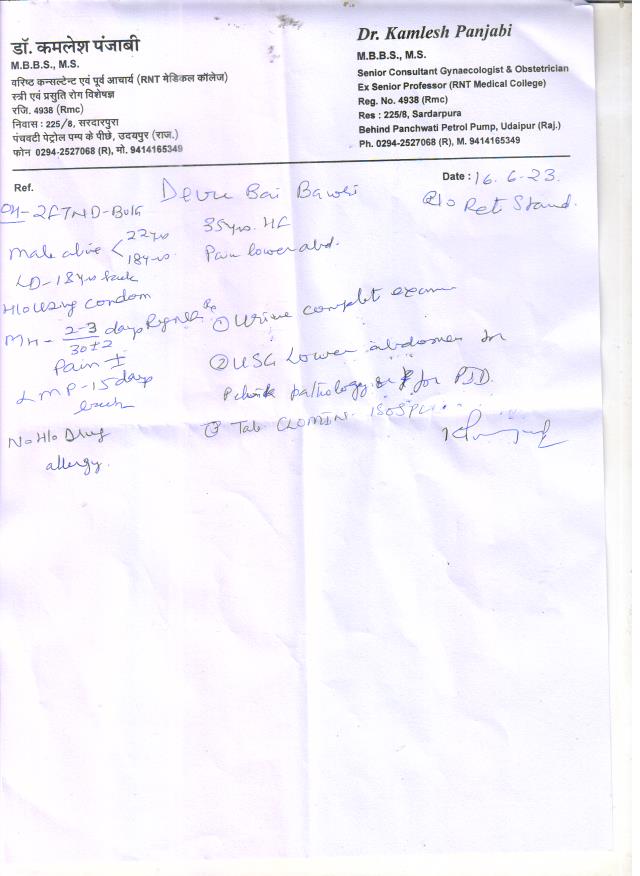 डॉ. कमलेश पंजाबी
M.B.B.S., M.S.
वरिष्ठ कन्सल्टेन्ट एवं पूर्व आचार्य (RNT मेडिकल कॉलेज)
स्त्री एवं प्रसुति रोग विशेषज्ञ
रजि. 4938 (Rmc)
निवास : 225/8, सरदारपुरा
पंचवटी पेट्रोल पम्प के पीछे, उदयपुर (राज.)
फोन 0294-2527068 (R), मो. 9414165349
Dr. Kamlesh Panjabi
M.B.B.S., M.S.
Senior Consultant Gynaecologist & Obstetrician
Ex Senior Professor (RNT Medical College)
Reg. No. 4938 (Rmc)
Res : 225/8, Sardarpura
Behind Panchwati Petrol Pump, Udaipur (Raj.)
Ph. 0294-2527068 (R), M. 9414165349
Ref.
Date : 16.6.23.
Devu Bai Bawri
R/o Reti Stand.
OH-2FTND-Both
male alive < 22yrs
18yrs.
LD-18yrs back
H/o Using condom
MH - 2-3 days Regular
30±2
Pain ±
LMP-15 days
back
No H/o Drug
allergy.
35yrs. HF
Pain lower abd.
① Urine complet exam
② USG Lower abdomen for
pathology for PID.
③ Tab